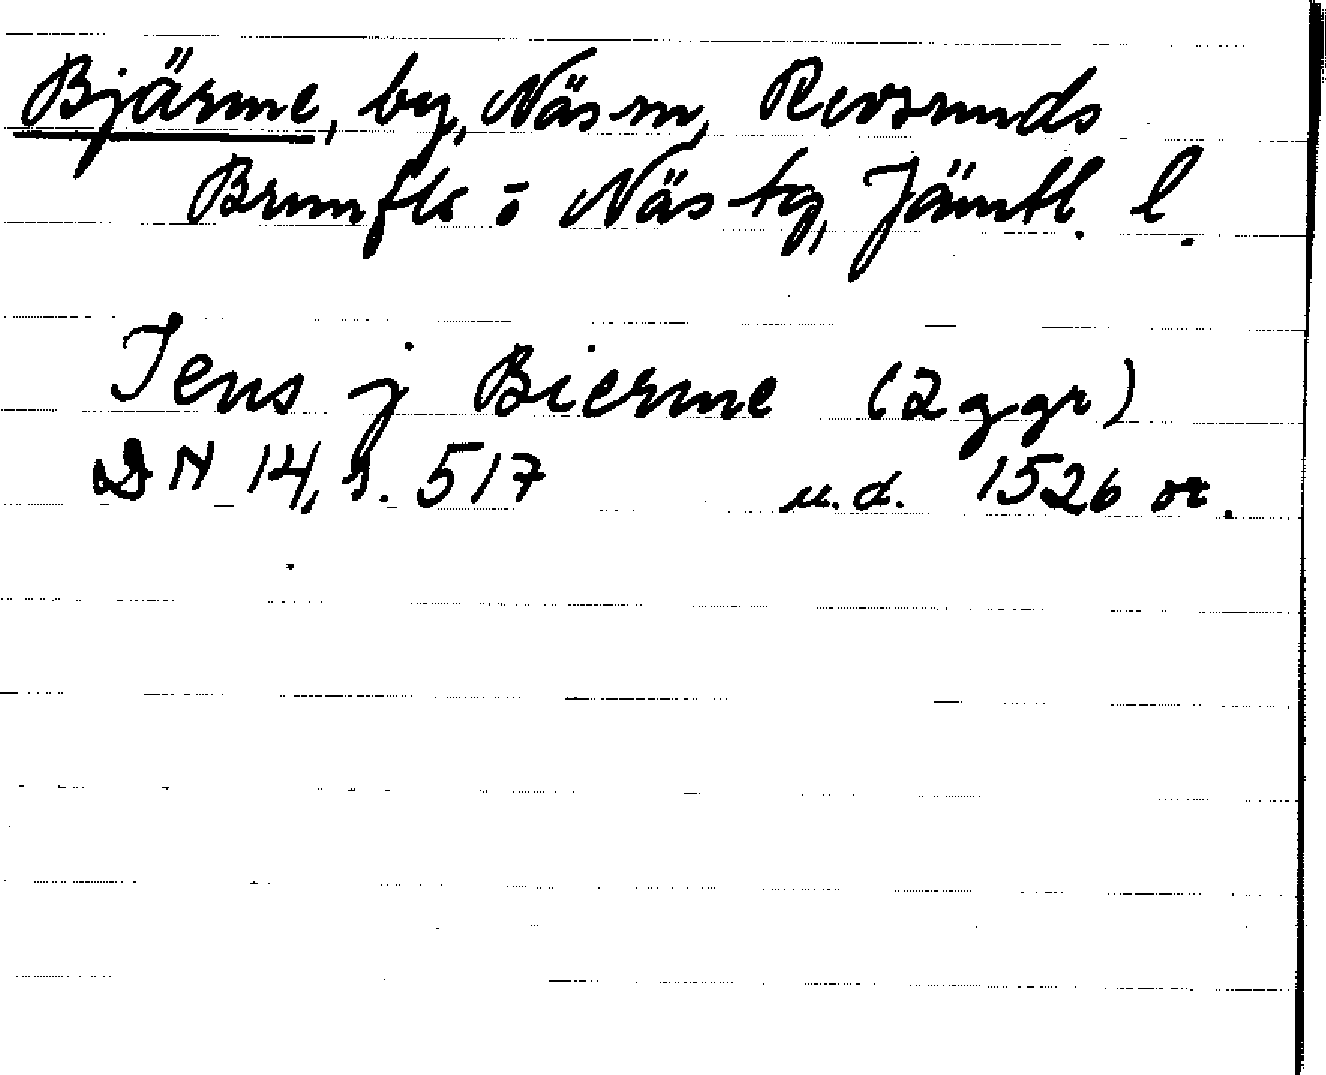 Bjärme, by, Näs sn, Revsunds
Brunflo o Näs tg, Jämtl. l.
Jens j Bierme (2 ggr)
DN 14, s. 517 u.d. 1526 or.